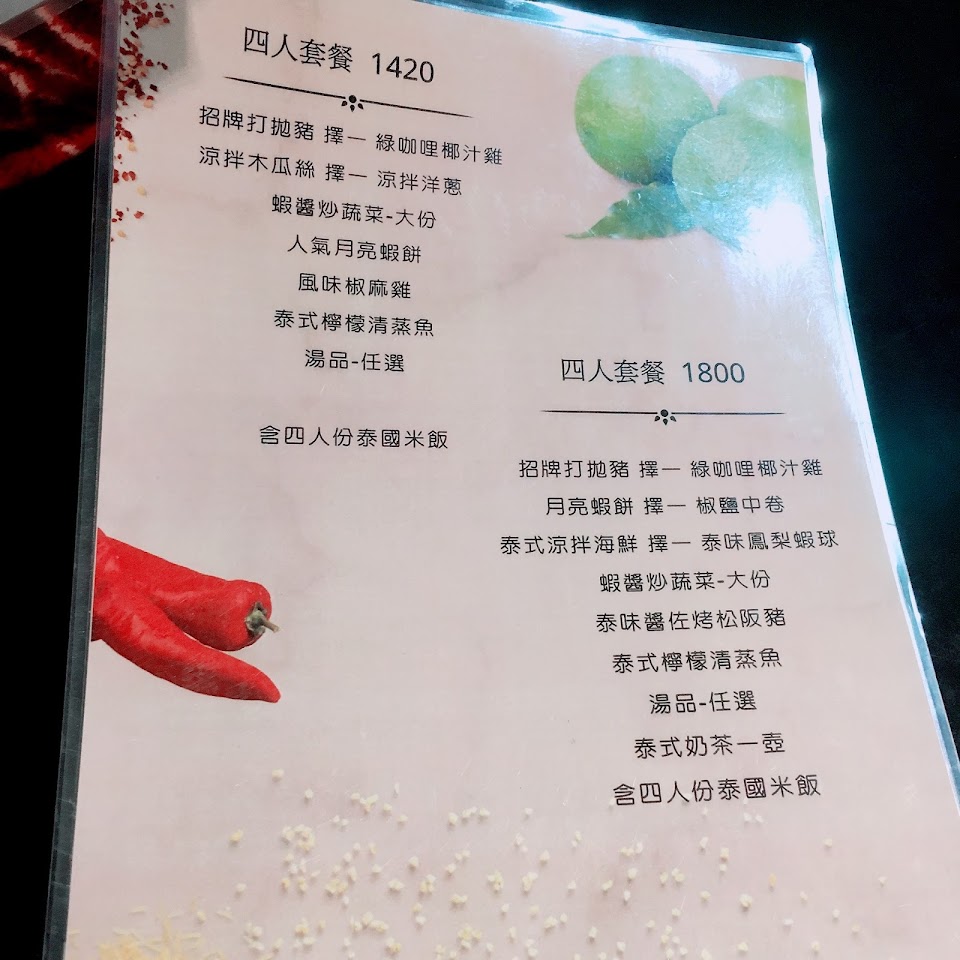 四人套餐 1420
招牌打拋豬 擇一 綠咖哩椰汁雞
涼拌木瓜絲 擇一 涼拌洋蔥
蝦醬炒蔬菜-大份
人氣月亮蝦餅
風味椒麻雞
泰式檸檬清蒸魚
湯品-任選
含四人份泰國米飯
四人套餐 1800
招牌打拋豬 擇一 綠咖哩椰汁雞
月亮蝦餅 擇一 椒鹽中卷
泰式涼拌海鮮 擇一 泰味鳳梨蝦球
蝦醬炒蔬菜-大份
泰味醬佐烤松阪豬
泰式檸檬清蒸魚
湯品-任選
泰式奶茶一壺
含四人份泰國米飯